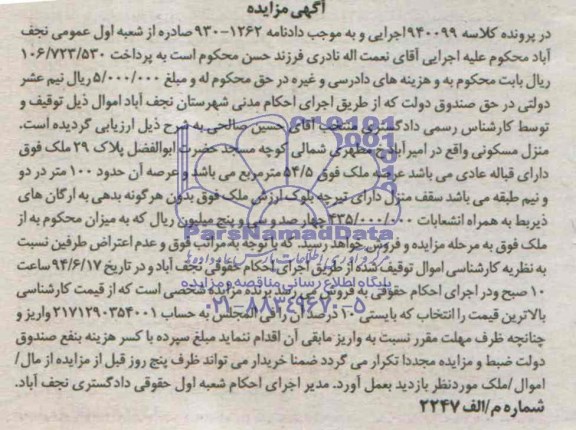 آگهی مزایده
در پرونده کلاسه ۹۴۰۰۹۹اجرایی و به موجب دادنامه ۱۲۶۲-۹۳۰ صادره از شعبه اول عمومی نجف
آباد محکوم علیه اجرایی آقای نعمت اله نادری فرزند حسن محکوم است به پرداخت ۱۰۶/۷۲۳/۵۳۰
ریال بابت محکوم به و هزینه های دادرسی و غیره در حق محکوم له و مبلغ ۵/۰۰۰/۰۰۰ریال نیم عشر
دولتی در حق صندوق دولت که از طریق اجرای احکام مدنی شهرستان نجف آباد اموال ذیل توقیف و
توسط کارشناس رسمی دادگستری منتخب آقای حسین صالحی به شرح ذیل ارزیابی گردیده است.
منزل مسکونی واقع در امیرآباد خ مطهری شمالی کوچه مسجد حضرت ابوالفضل پلاک ۲۹ ملک فوق
دارای قباله عادی می باشد عرصه ملک فوق ۵۴/۵مترمربع می باشد و عرصه آن حدود ۱۰۰ متر در دو
و نیم طبقه می باشد سقف منزل دارای تیرچه بلوک ارزش ملک فوق بدون هرگونه بدهی به ارگان های
ذیربط به همراه انشعابات ۴۳۵/۰۰۰/۰۰۰ چهارصد و سی و پنج میلیون ریال که به میزان محکوم به از
ملک فوق به مرحله مزایده و فروش خواهد رسید. که با توجه به مراتب فوق و عدم اعتراض طرفین نسبت
به نظریه کارشناسی اموال توقیف شده از طریق اجرای احکام حقوقی نجف آباد و در تاریخ ۹۴/۶/۱۷ ساعت
۱۰ صبح ودر اجرای احکام حقوقی به فروش می رسد برنده مزایده شخصی است که از قیمت کارشناسی
بالاترین قیمت را انتخاب که بایستی ۱۰ درصد آن را فی المجلس به حساب ۲۱۷۱۲۹۰۳۵۴۰۰۱ واریز و
چنانچه ظرف مهلت مقرر نسبت به واریز مابقی آن اقدام ننماید مبلغ سپرده با کسر هزینه بنفع صندوق
دولت ضبط و مزایده مجددا تکرار می گردد ضمنا خریدار می تواند ظرف پنج روز قبل از مزایده از مال/
اموال/ملک موردنظر بازدید بعمل آورد. مدیر اجرای احکام شعبه اول حقوقی دادگستری نجف آباد.
شماره م/الف ۲۲۴۷
ParsNamadData
پایگاه اطلاع رسانی مناقصه و مزایده
۰۲۱-۸۸۳۴۹۶۷۰-۵